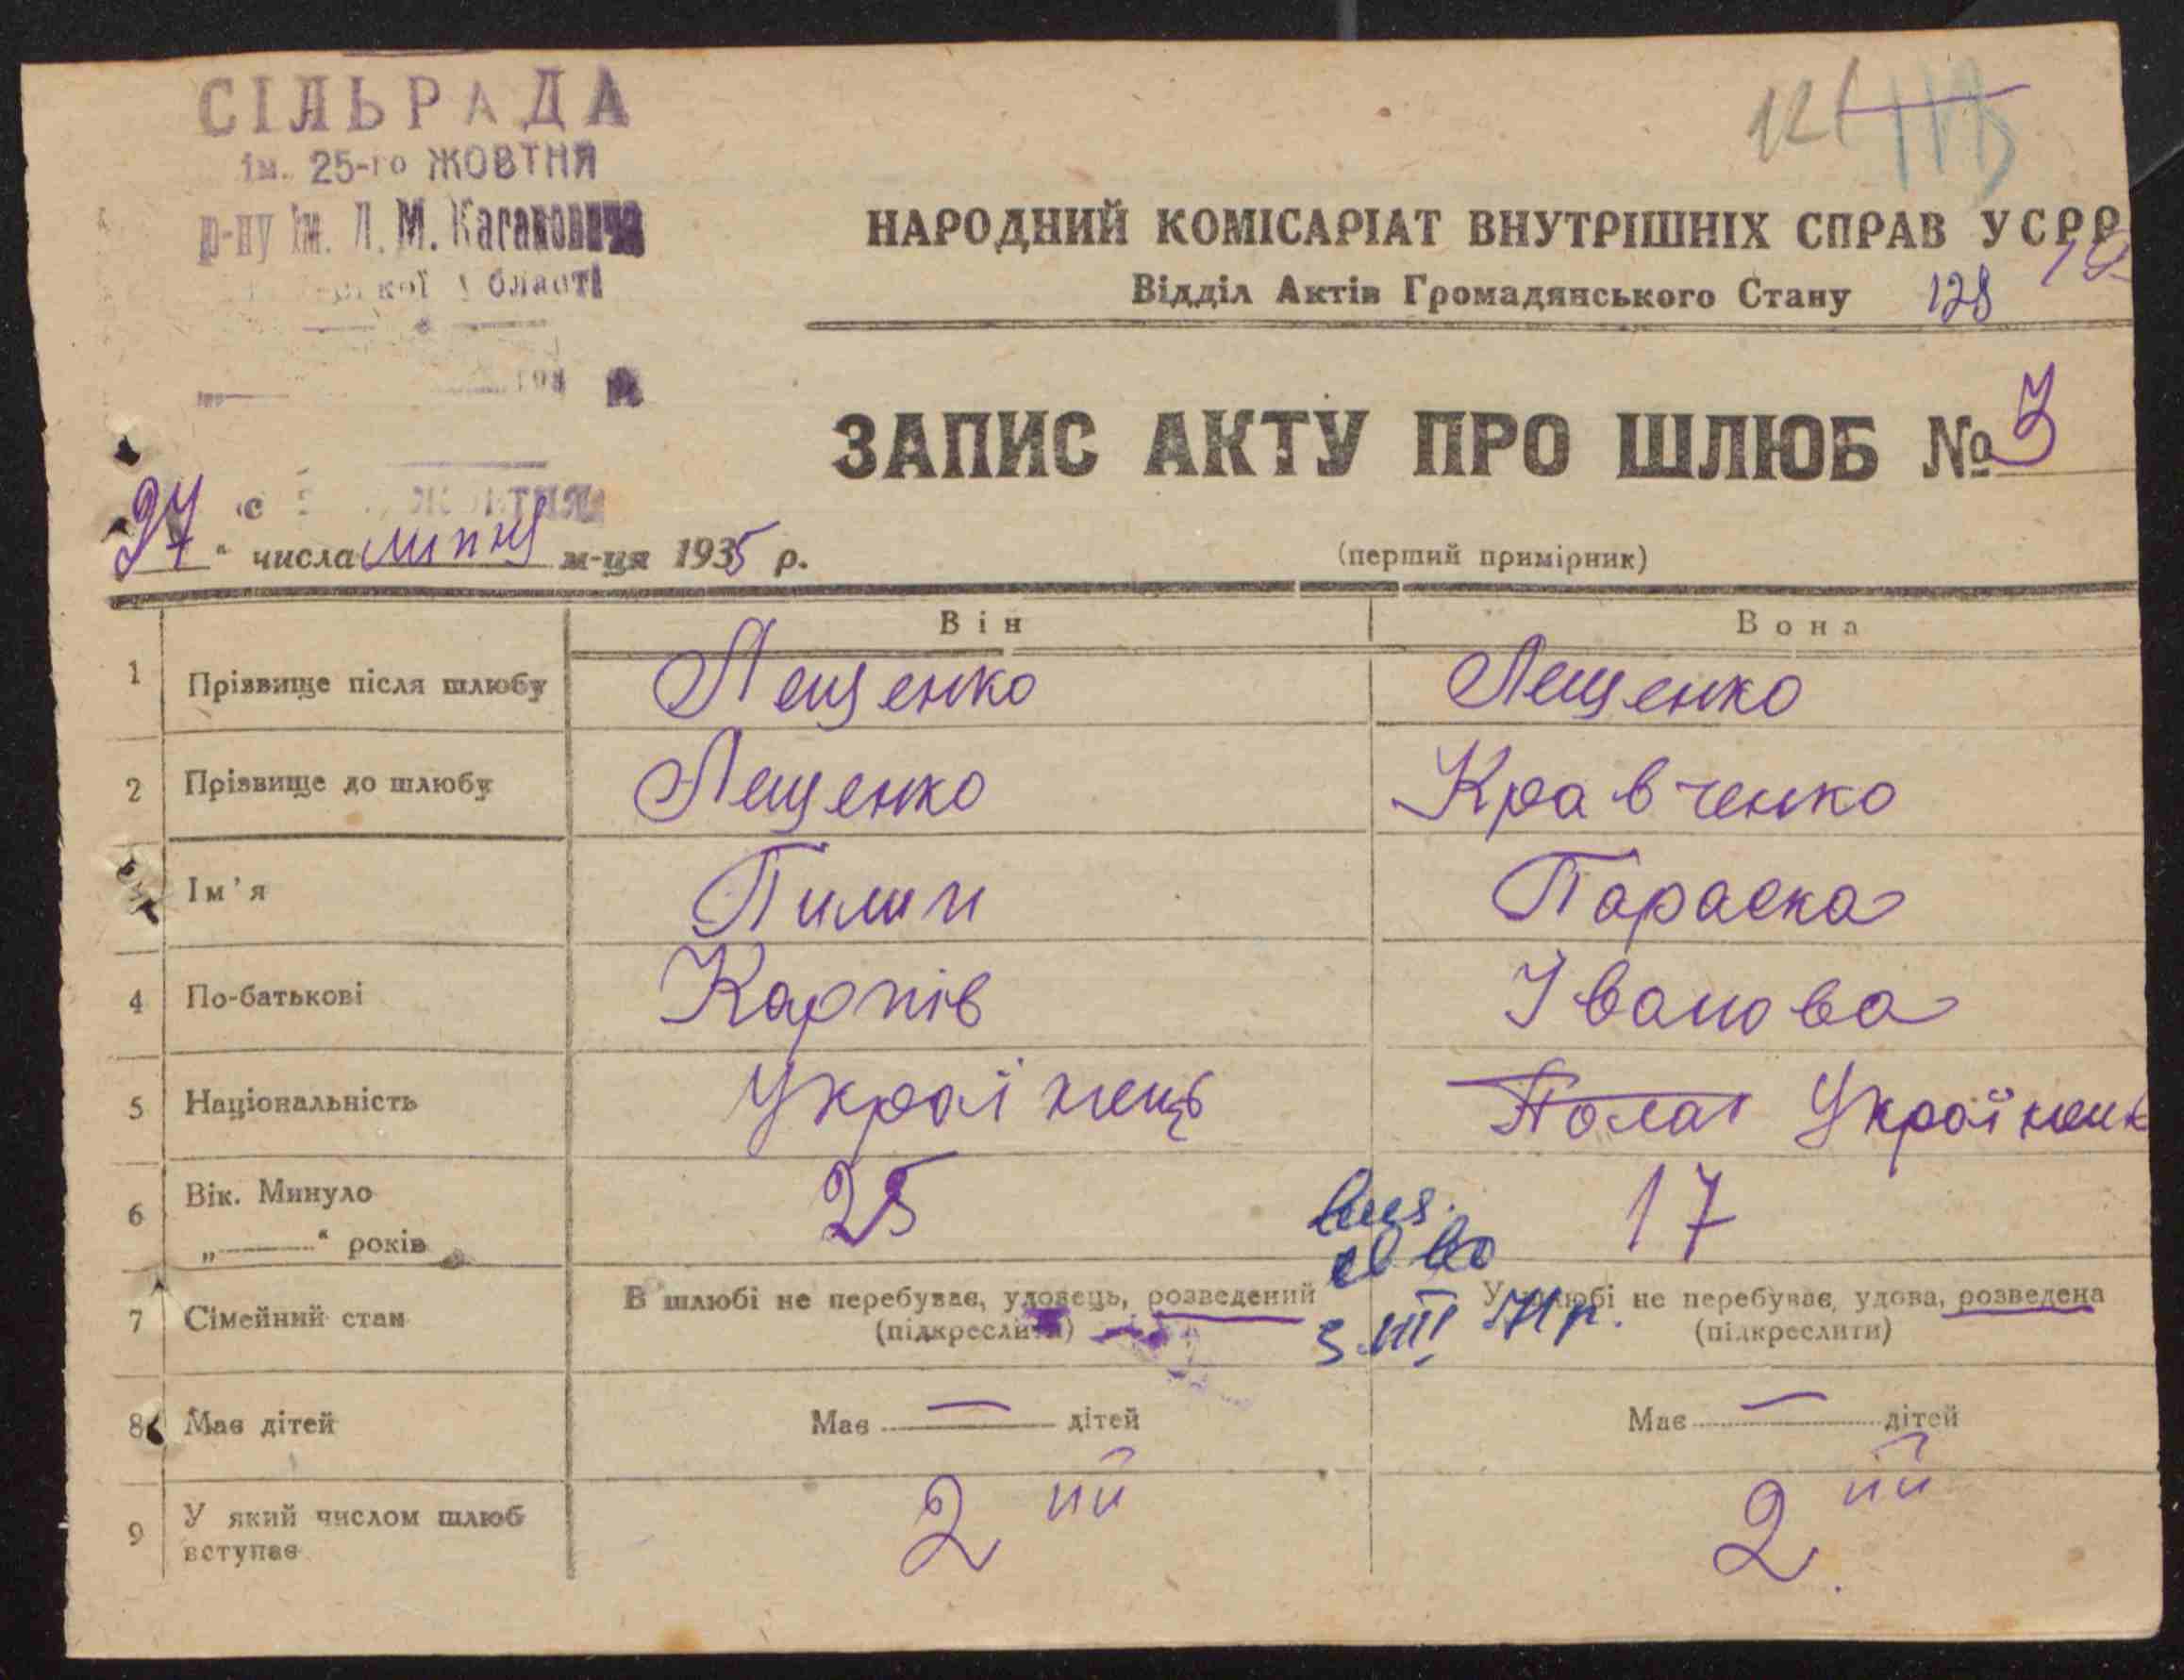 СІЛЬРАДА
ім. 25-го ЖОВТНЯ
р-ну ім. Л. М. Кагановича
області
НАРОДНИЙ КОМІСАРІАТ ВНУТРІШНІХ СПРАВ УСРР
Відділ Актів Громадянського Стану 128
ЗАПИС АКТУ ПРО ШЛЮБ № 3
27 " числа липня м-ця 1935 р.
(перший примірник)
Він Вона
1 Прізвище після шлюбу Лещенко Лещенко
2 Прізвище до шлюбу Лещенко Кравченко
Ім'я Пилип Параска
4 По-батькові Карпів Іванова
5 Національність Українець Українк
6 Вік. Минуло 25 17
„———“ років
7 Сімейний стан В шлюбі не перебуває, удовець, розведений У шлюбі не перебуває, удова, розведена
(підкреслити) (підкреслити)
3.VIII 71 р.
8 Має дітей Має — дітей Має — дітей
9 У який числом шлюб вступає 2 ий 2 ий